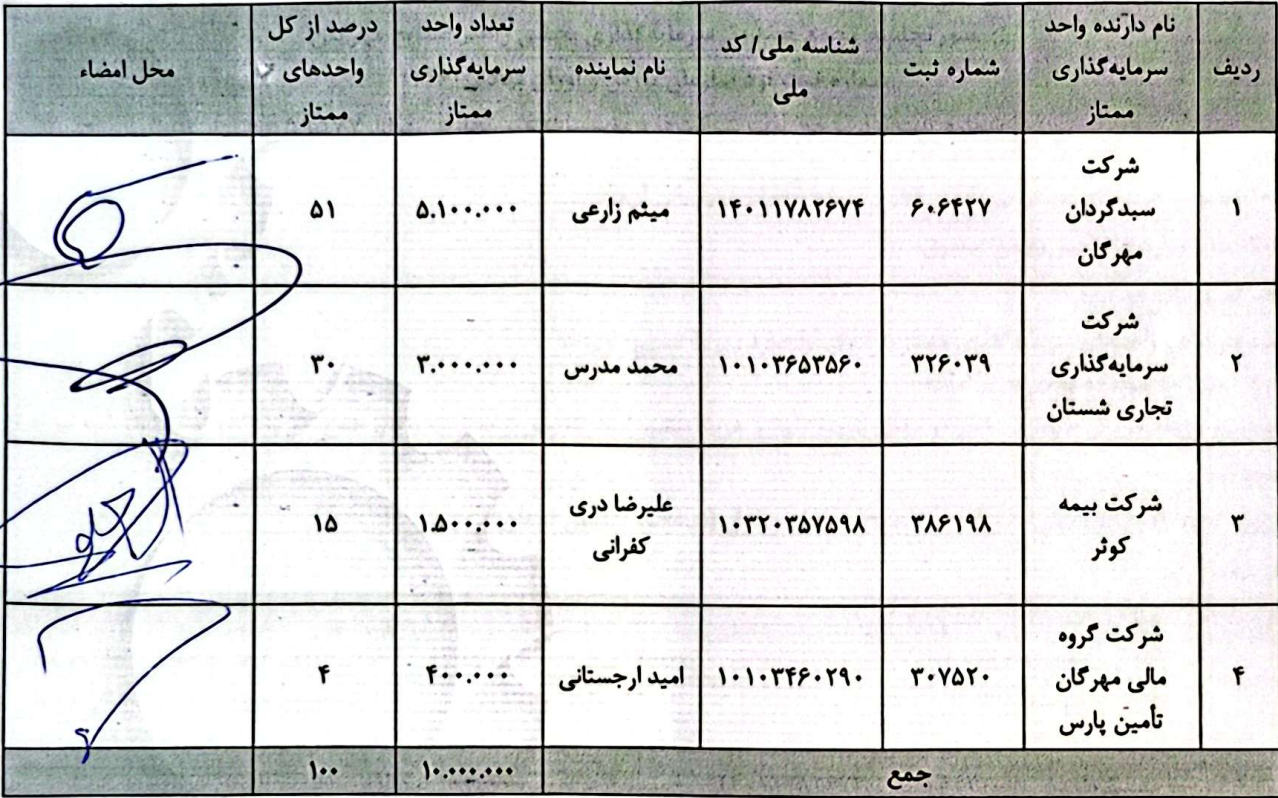 ردیف
نام دارنده واحد
سرمایه‌گذاری
ممتاز
شماره ثبت
شناسه ملی/ کد
ملی
نام نماینده
تعداد واحد
سرمایه‌گذاری
ممتاز
درصد از کل
واحدهای
ممتاز
محل امضاء
۱
شرکت
سبدگردان
مهرگان
۶۰۶۴۲۷
۱۴۰۱۱۷۸۲۶۷۴
میثم زارعی
۵.۱۰۰.۰۰۰
۵۱
۲
شرکت
سرمایه‌گذاری
تجاری شستان
۳۲۶۰۳۹
۱۰۱۰۳۶۵۳۵۶۰
محمد مدرس
۳.۰۰۰.۰۰۰
۳۰
۳
شرکت بیمه
کوثر
۳۸۶۱۹۸
۱۰۳۲۰۳۵۷۵۹۸
علیرضا دری
کفرانی
۱.۵۰۰.۰۰۰
۱۵
۴
شرکت گروه
مالی مهرگان
تأمین پارس
۳۰۷۵۲۰
۱۰۱۰۳۴۶۰۲۹۰
امید ارجستانی
۴۰۰.۰۰۰
۴
جمع
۱۰.۰۰۰.۰۰۰
۱۰۰